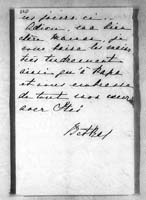 ces jours ci.
Adieu, ma bien
chère Maman, je
vous baise les mains
très tendrement
ainsi qu'à Papa
et vous embrasse
de tout mon cœur
avec